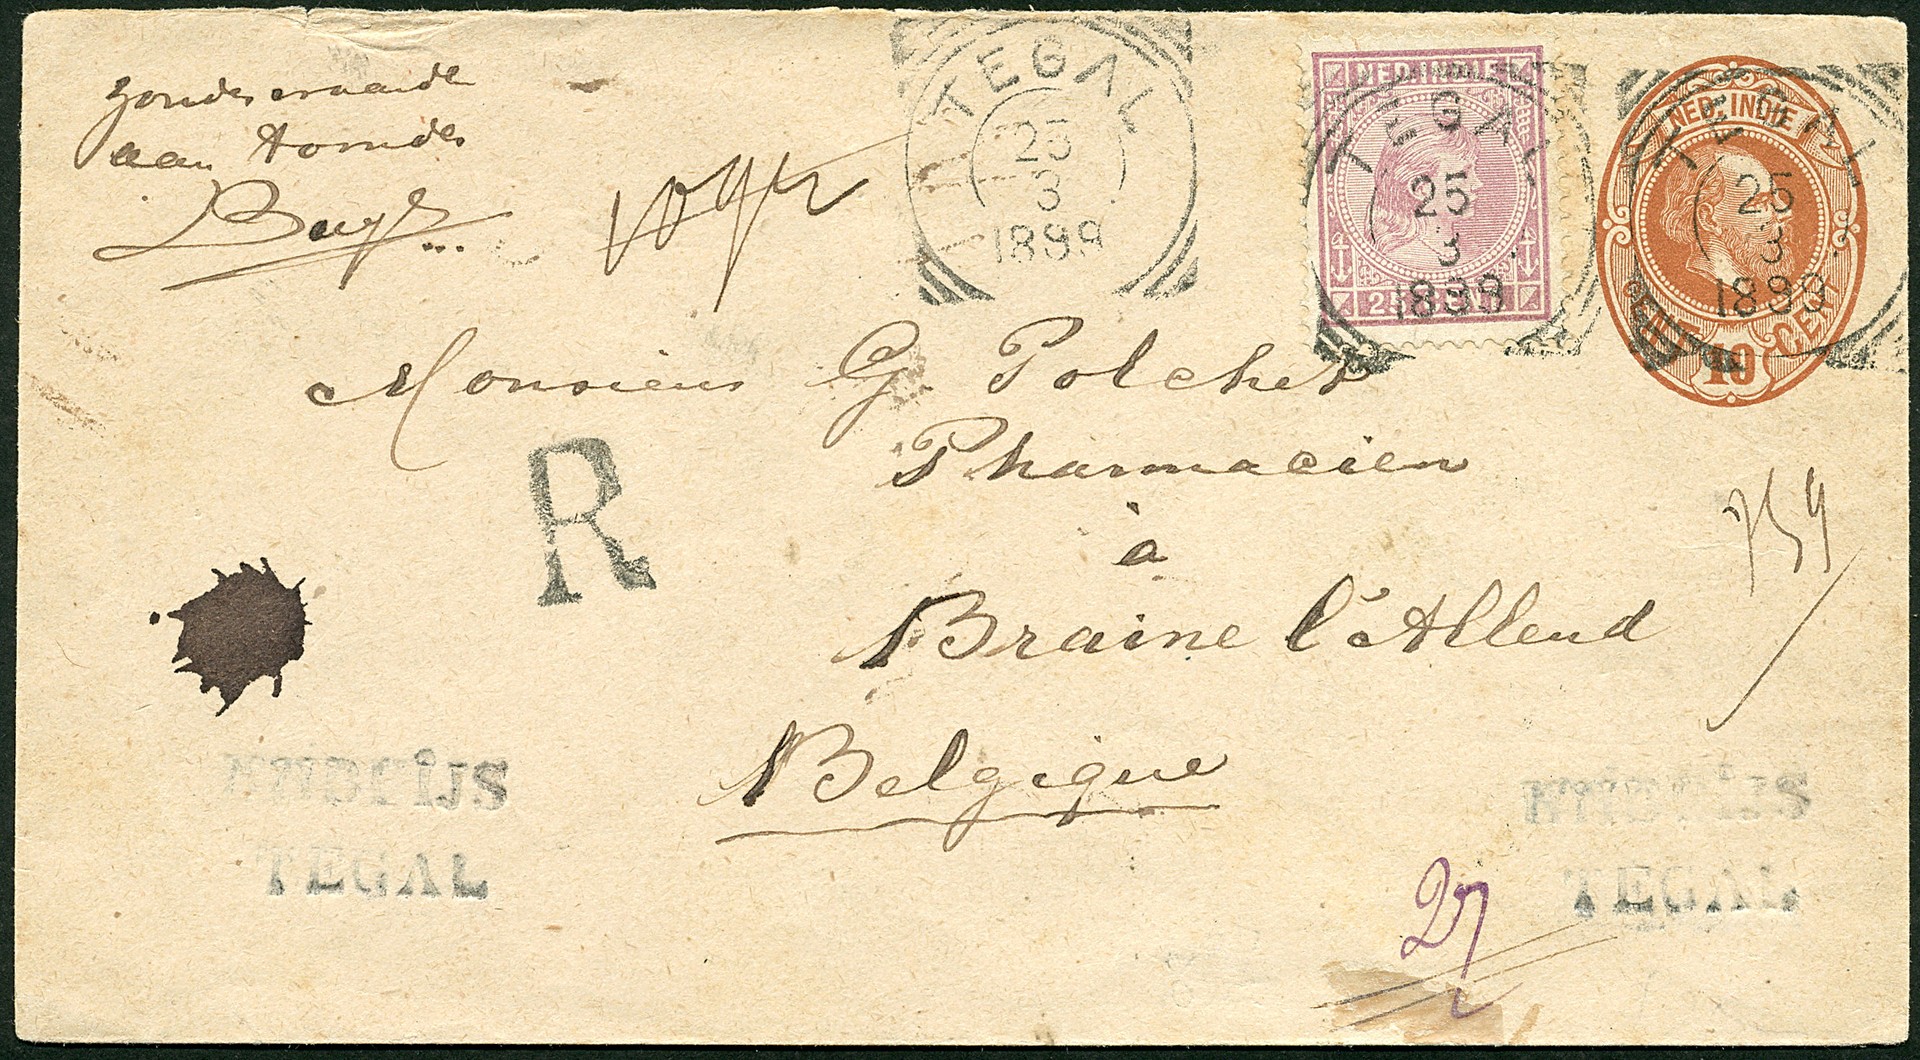 TEGAL
25
3
1899
NED. INDIE
25 CENT
TEGAL
25
3
1899
NED. INDIE
10 CENT
TEGAL
25
3
1899
zonder waarde
aan
Monsieur G. Polchet
Pharmacien
à
Braine l'Alleud
Belgique
R
759
TEGAL
TEGAL
27